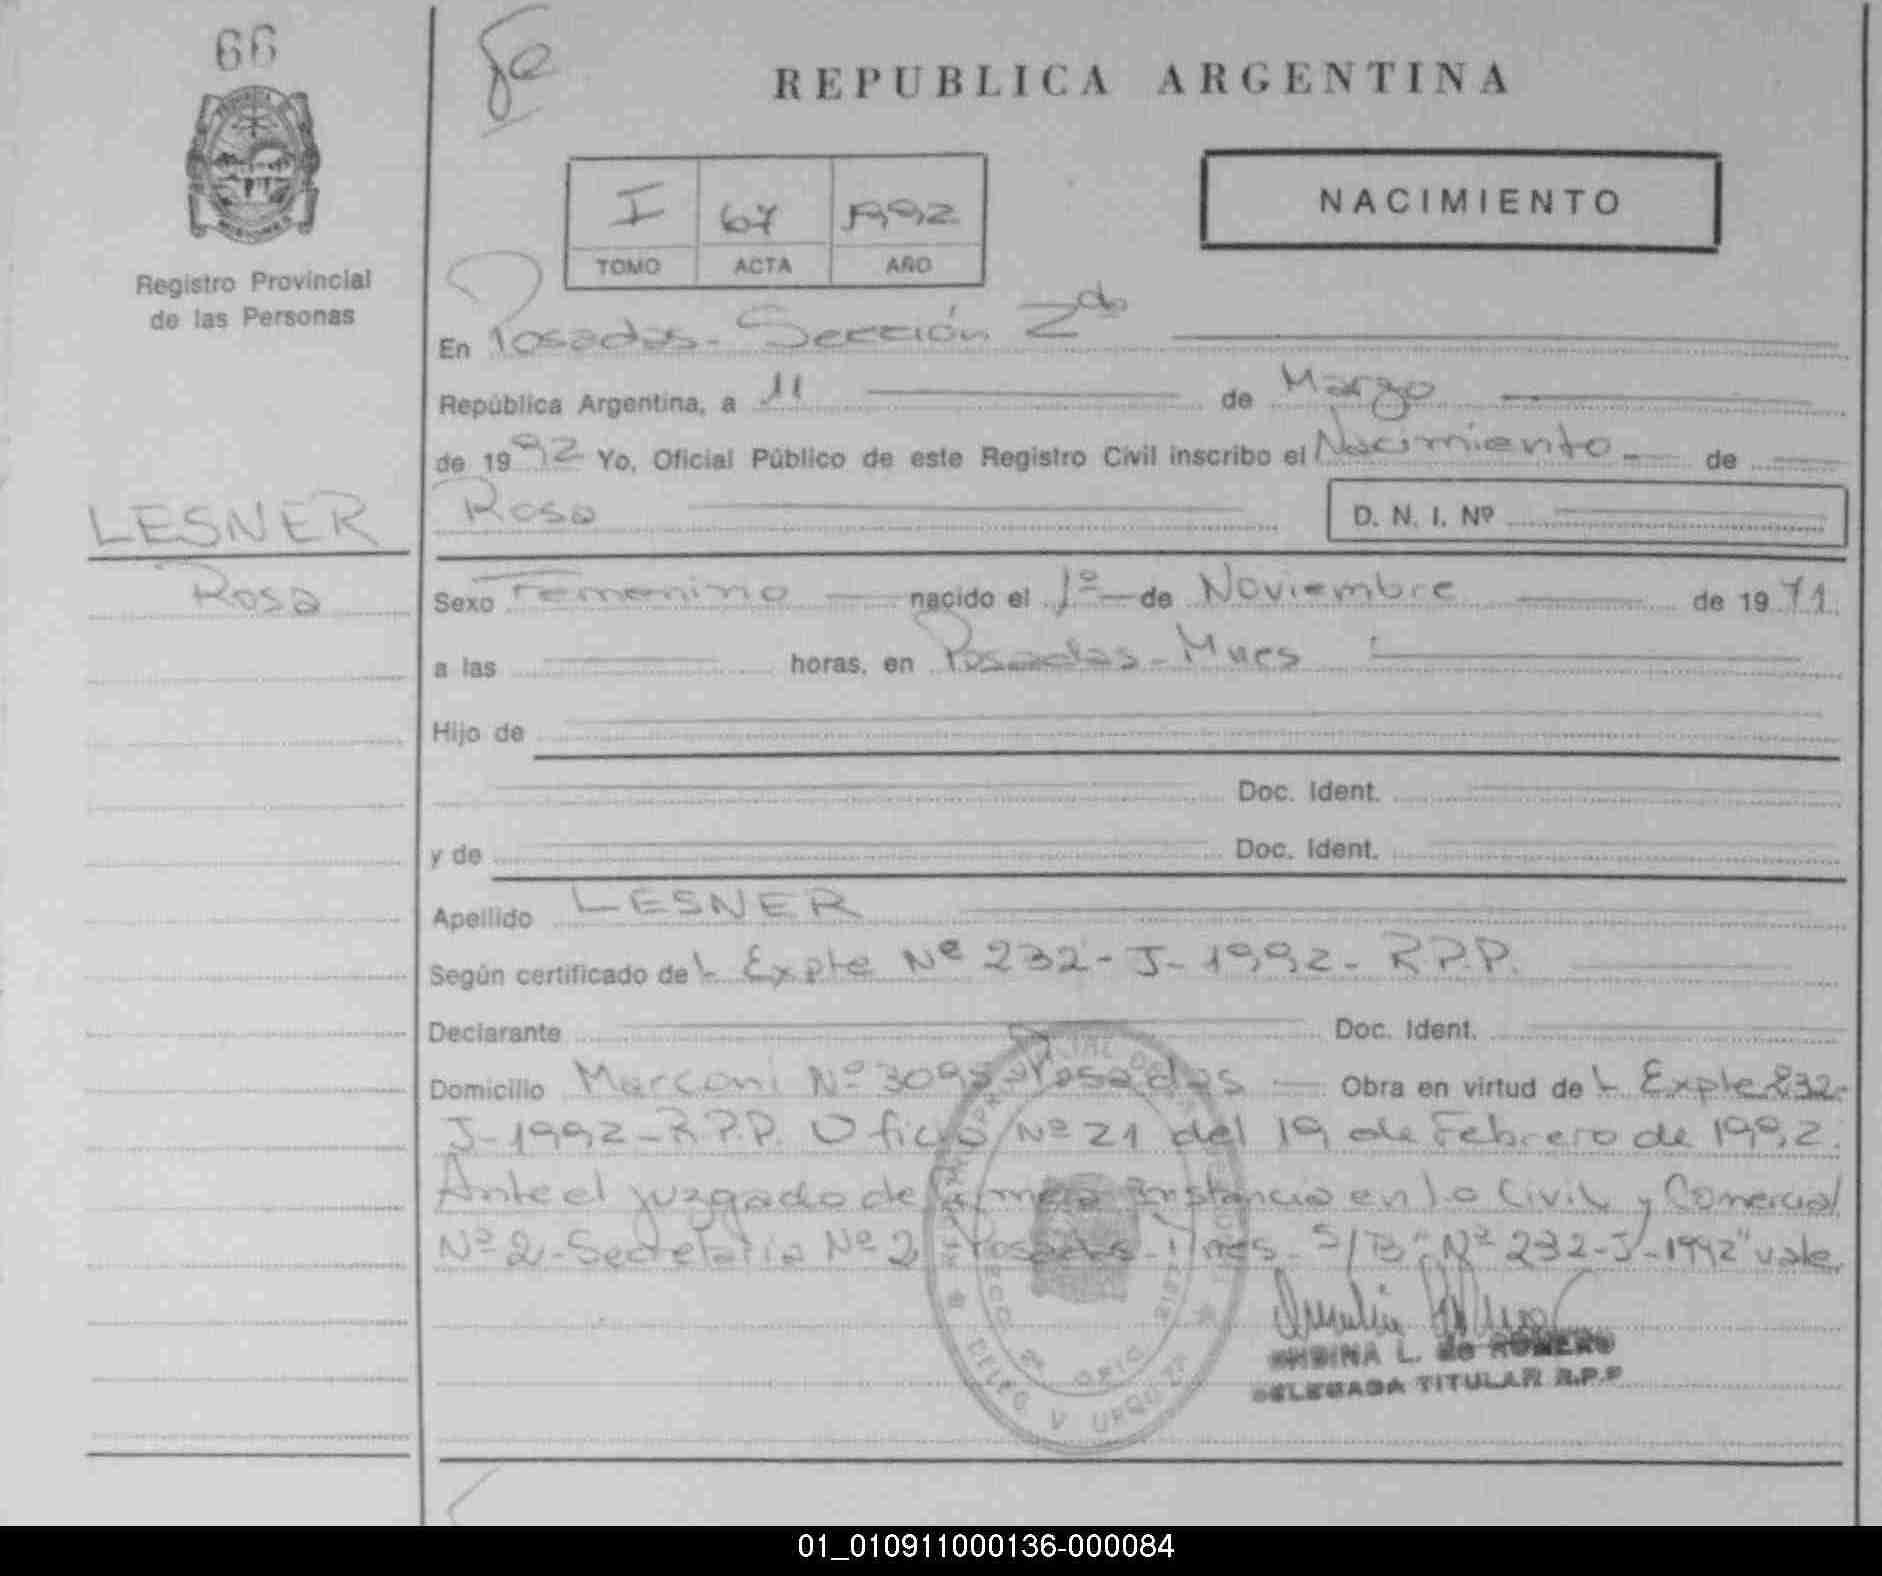 66
Fe
REPUBLICA ARGENTINA
I 67 1992
TOMO ACTA AÑO
NACIMIENTO
Registro Provincial
de las Personas
En Posadas - Sección 2da
República Argentina, a 11 de Marzo
de 1992 Yo, Oficial Público de este Registro Civil inscribo el Nacimiento - de
Rosa D. N. I. Nº
LESNER
Rosa
Sexo Femenino nacido el 1º de Noviembre de 1971.
a las horas, en Posadas - Mnes
Hijo de
Doc. Ident.
y de Doc. Ident.
Apellido LESNER
Según certificado del Expte Nº 232 - J - 1992 - R.P.P.
Declarante Doc. Ident.
Domicilio Marconi Nº 3098 Posadas Obra en virtud del Expte 232-
J-1992-R.P.P. Oficio Nº 21 del 19 de Febrero de 1992.
Ante el juzgado de Primera Instancia en lo Civil y Comercial
Nº 2 - Secretaria Nº 2 Posadas - Mnes - S/B "Nº 232-J-1992" vale.
L. de ROMERO
DELEGADA TITULAR R.P.P
DELEG V URQUIZA
01_010911000136-000084